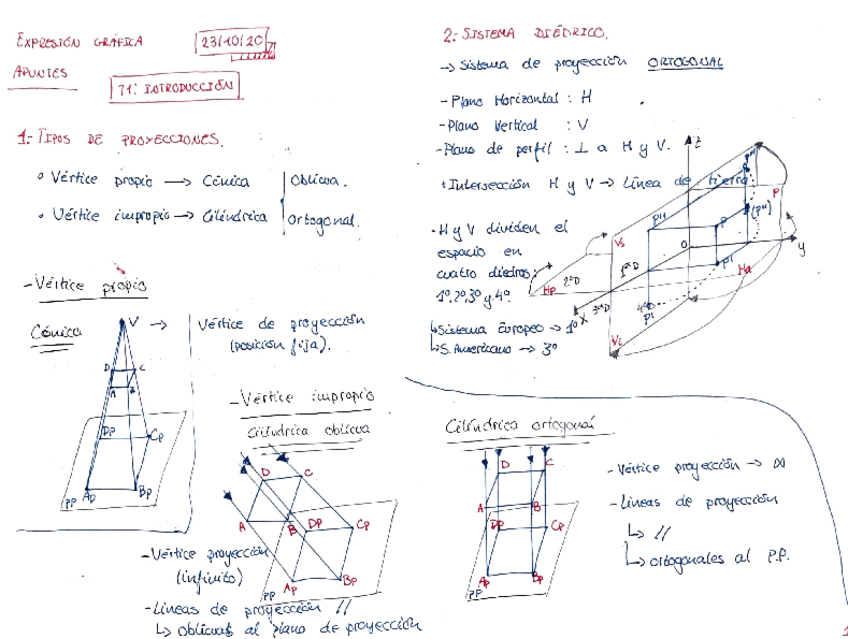 EXPRESIÓN GRÁFICA
23/10/20
APUNTES
T1: INTRODUCCIÓN
1: TIPOS DE PROYECCIONES.
° Vértice propio → Cónica
Oblicua.
° Vértice impropio → Cilíndrica
Ortogonal.
- Vértice propio
Cónica
V → Vértice de proyección
(posición fija).
D C
A B
DP CP
AP BP
PP
- Vértice impropio
Cilíndrica oblicua
D C
A B DP CP
AP BP
PP
- Vértice proyección
(infinito)
- Líneas de proyección //
↳ Oblicuas al plano de proyección
2: SISTEMA DIÉDRICO.
→ Sistema de proyección ORTOGONAL
- Plano Horizontal : H
- Plano Vertical : V
- Plano de perfil : ⊥ a H y V.
+ Intersección H y V → Línea de tierra
- H y V dividen el
espacio en
cuatro diedros:
1º, 2º, 3º y 4º.
↳ Sistema Europeo → 1º
↳ S. Americano → 3º
z
P
P''
P
(P'')
Vs
O
P'
y
1ºD
2ºD
Hp
Ha
3ºD
4ºD
X
P'
Vi
Cilíndrica ortogonal
D C
A B
DP CP
AP BP
PP
- Vértice proyección → ∞
- Líneas de proyección
↳ //
↳ ortogonales al P.P.
1